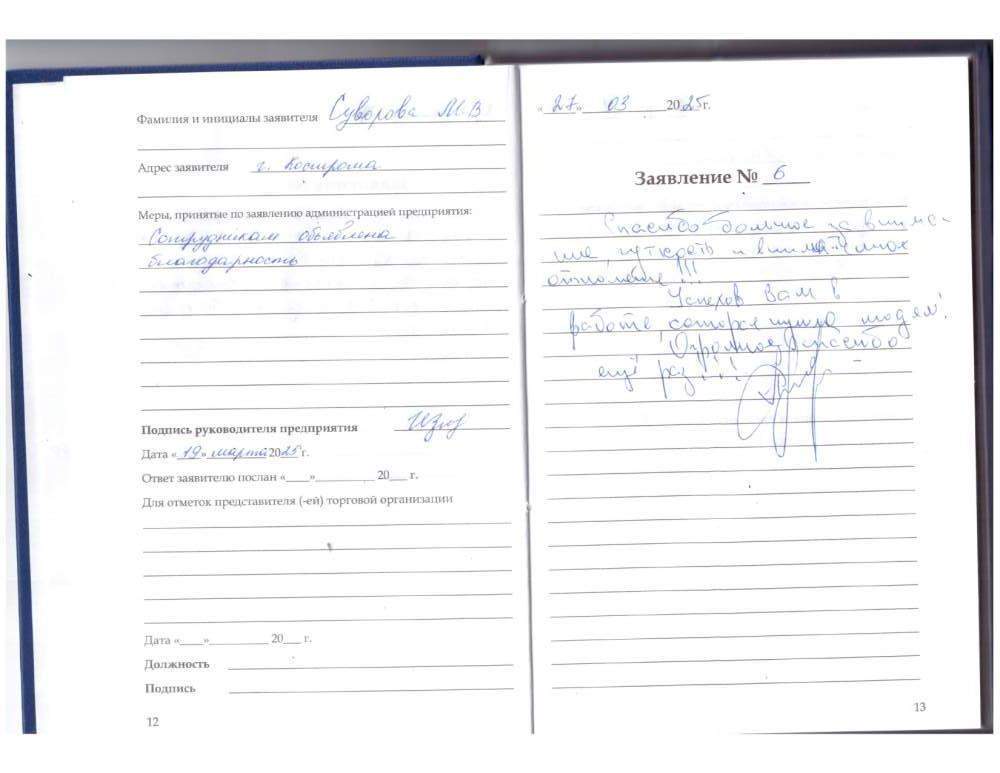 Фамилия и инициалы заявителя Суворова М.В.
Адрес заявителя г. Кострома
Меры, принятые по заявлению администрацией предприятия:
Сотрудникам объявлена
благодарность
Подпись руководителя предприятия
Дата «19» марта 2025 г.
Ответ заявителю послан «____»__________ 20___ г.
Для отметок представителя (-ей) торговой организации
Дата «____»__________ 20___ г.
Должность
Подпись
12
«27» 03 2025г.
Заявление № 6
Спасибо большое за внима-
ние, чуткость и внимательное
отношение!!!
Успехов Вам в
работе, которая нужна людям!
Огромное спасибо
ещё раз!!!
13